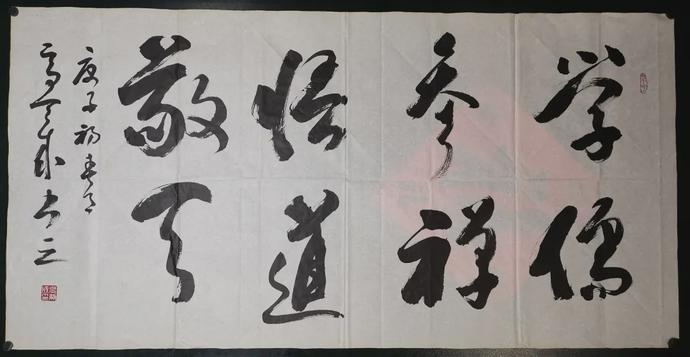 学儒
参禅
悟道
敬天
庚子初春